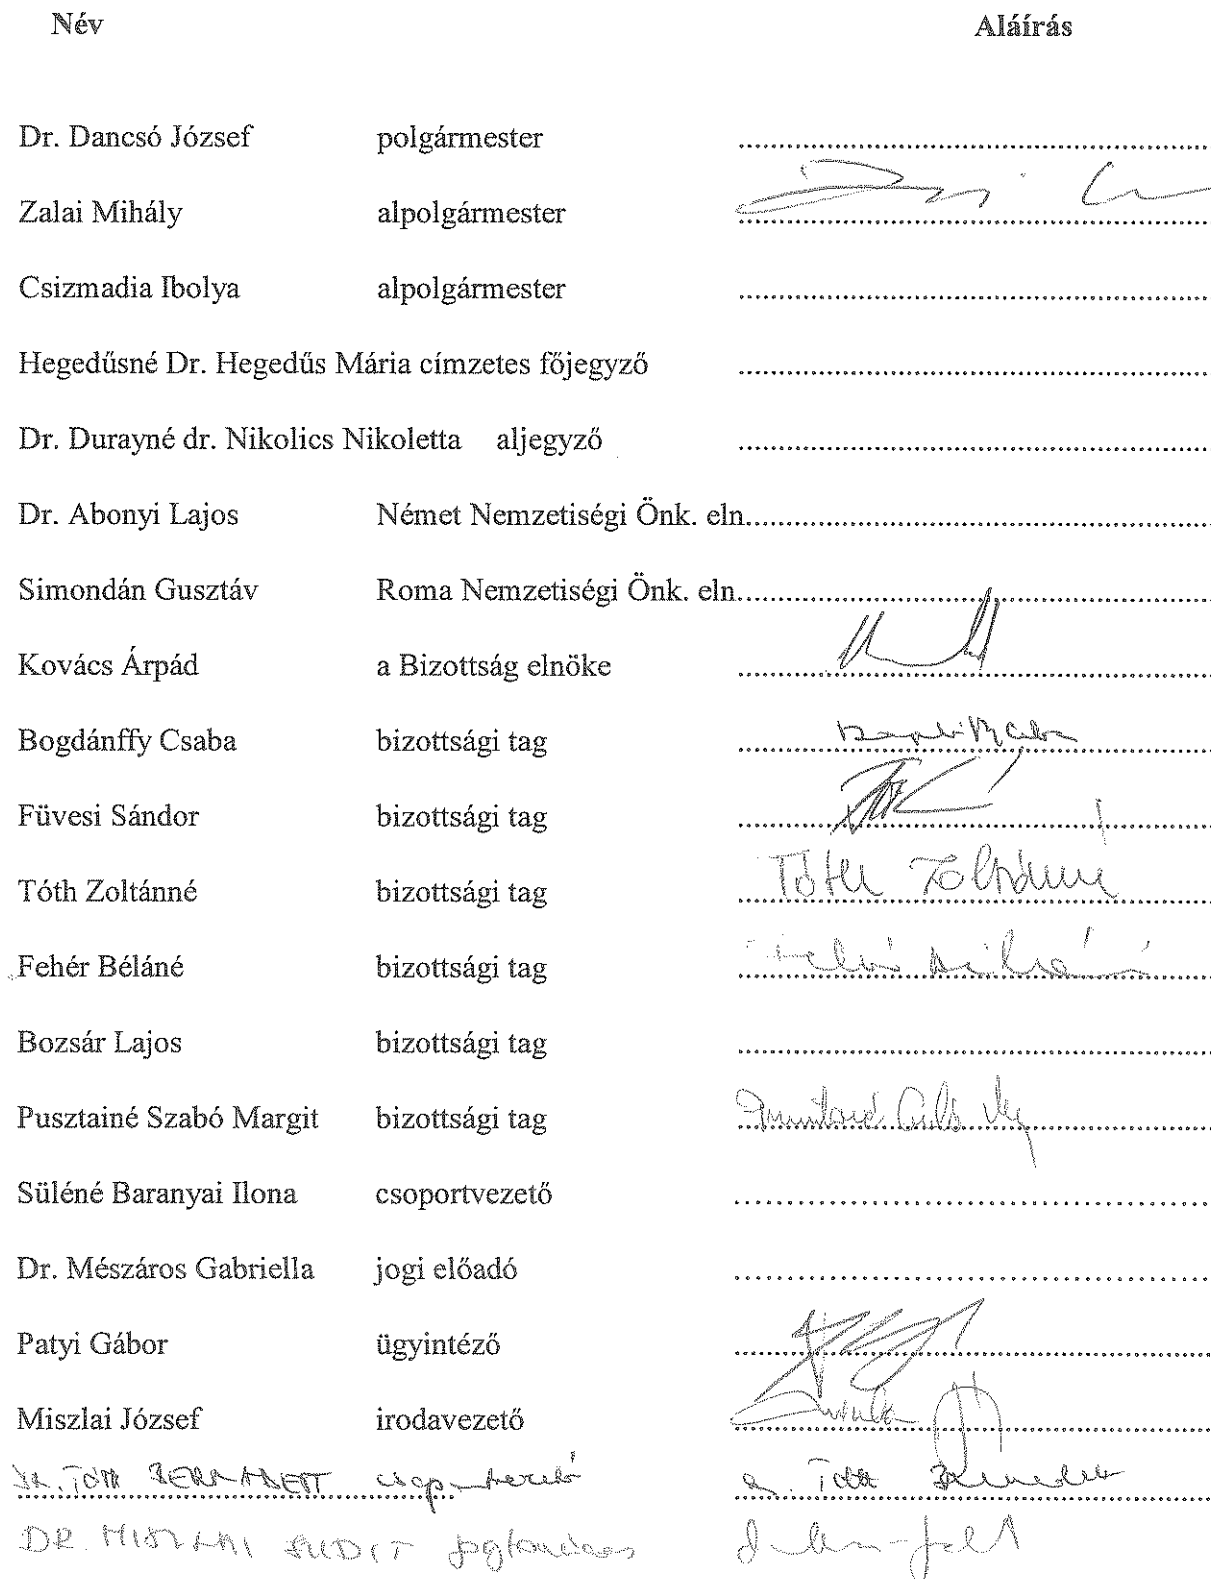 Név Aláírás
Dr. Dancsó József polgármester ........................................
Zalai Mihály alpolgármester ........................................
Csizmadia Ibolya alpolgármester ........................................
Hegedűsné Dr. Hegedűs Mária címzetes főjegyző ........................................
Dr. Durayné dr. Nikolics Nikoletta aljegyző ........................................
Dr. Abonyi Lajos Német Nemzetiségi Önk. eln........................................
Simondán Gusztáv Roma Nemzetiségi Önk. eln........................................
Kovács Árpád a Bizottság elnöke ........................................
Bogdánffy Csaba bizottsági tag ........................................
Füvesi Sándor bizottsági tag ........................................
Tóth Zoltánné bizottsági tag Tóth Zoltánné
Fehér Béláné bizottsági tag ........................................
Bozsár Lajos bizottsági tag ........................................
Pusztainé Szabó Margit bizottsági tag ........................................
Süléné Baranyai Ilona csoportvezető ........................................
Dr. Mészáros Gabriella jogi előadó ........................................
Patyi Gábor ügyintéző ........................................
Miszlai József irodavezető ........................................
DR. TÓTH BERNADETT
DR. MISZLAI JUDIT